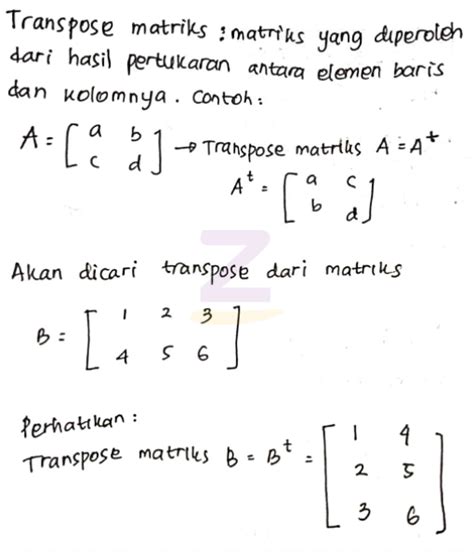 Transpose matriks : matriks yang diperoleh
dari hasil pertukaran antara elemen baris
dan kolomnya. Contoh :
A = [ a b
c d ] → Transpose matriks A = A^t.
A^t = [ a c
b d ]
Akan dicari transpose dari matriks
B = [ 1 2 3
4 5 6 ]
Perhatikan :
Transpose matriks B = B^t = [ 1 4
2 5
3 6 ]
Z